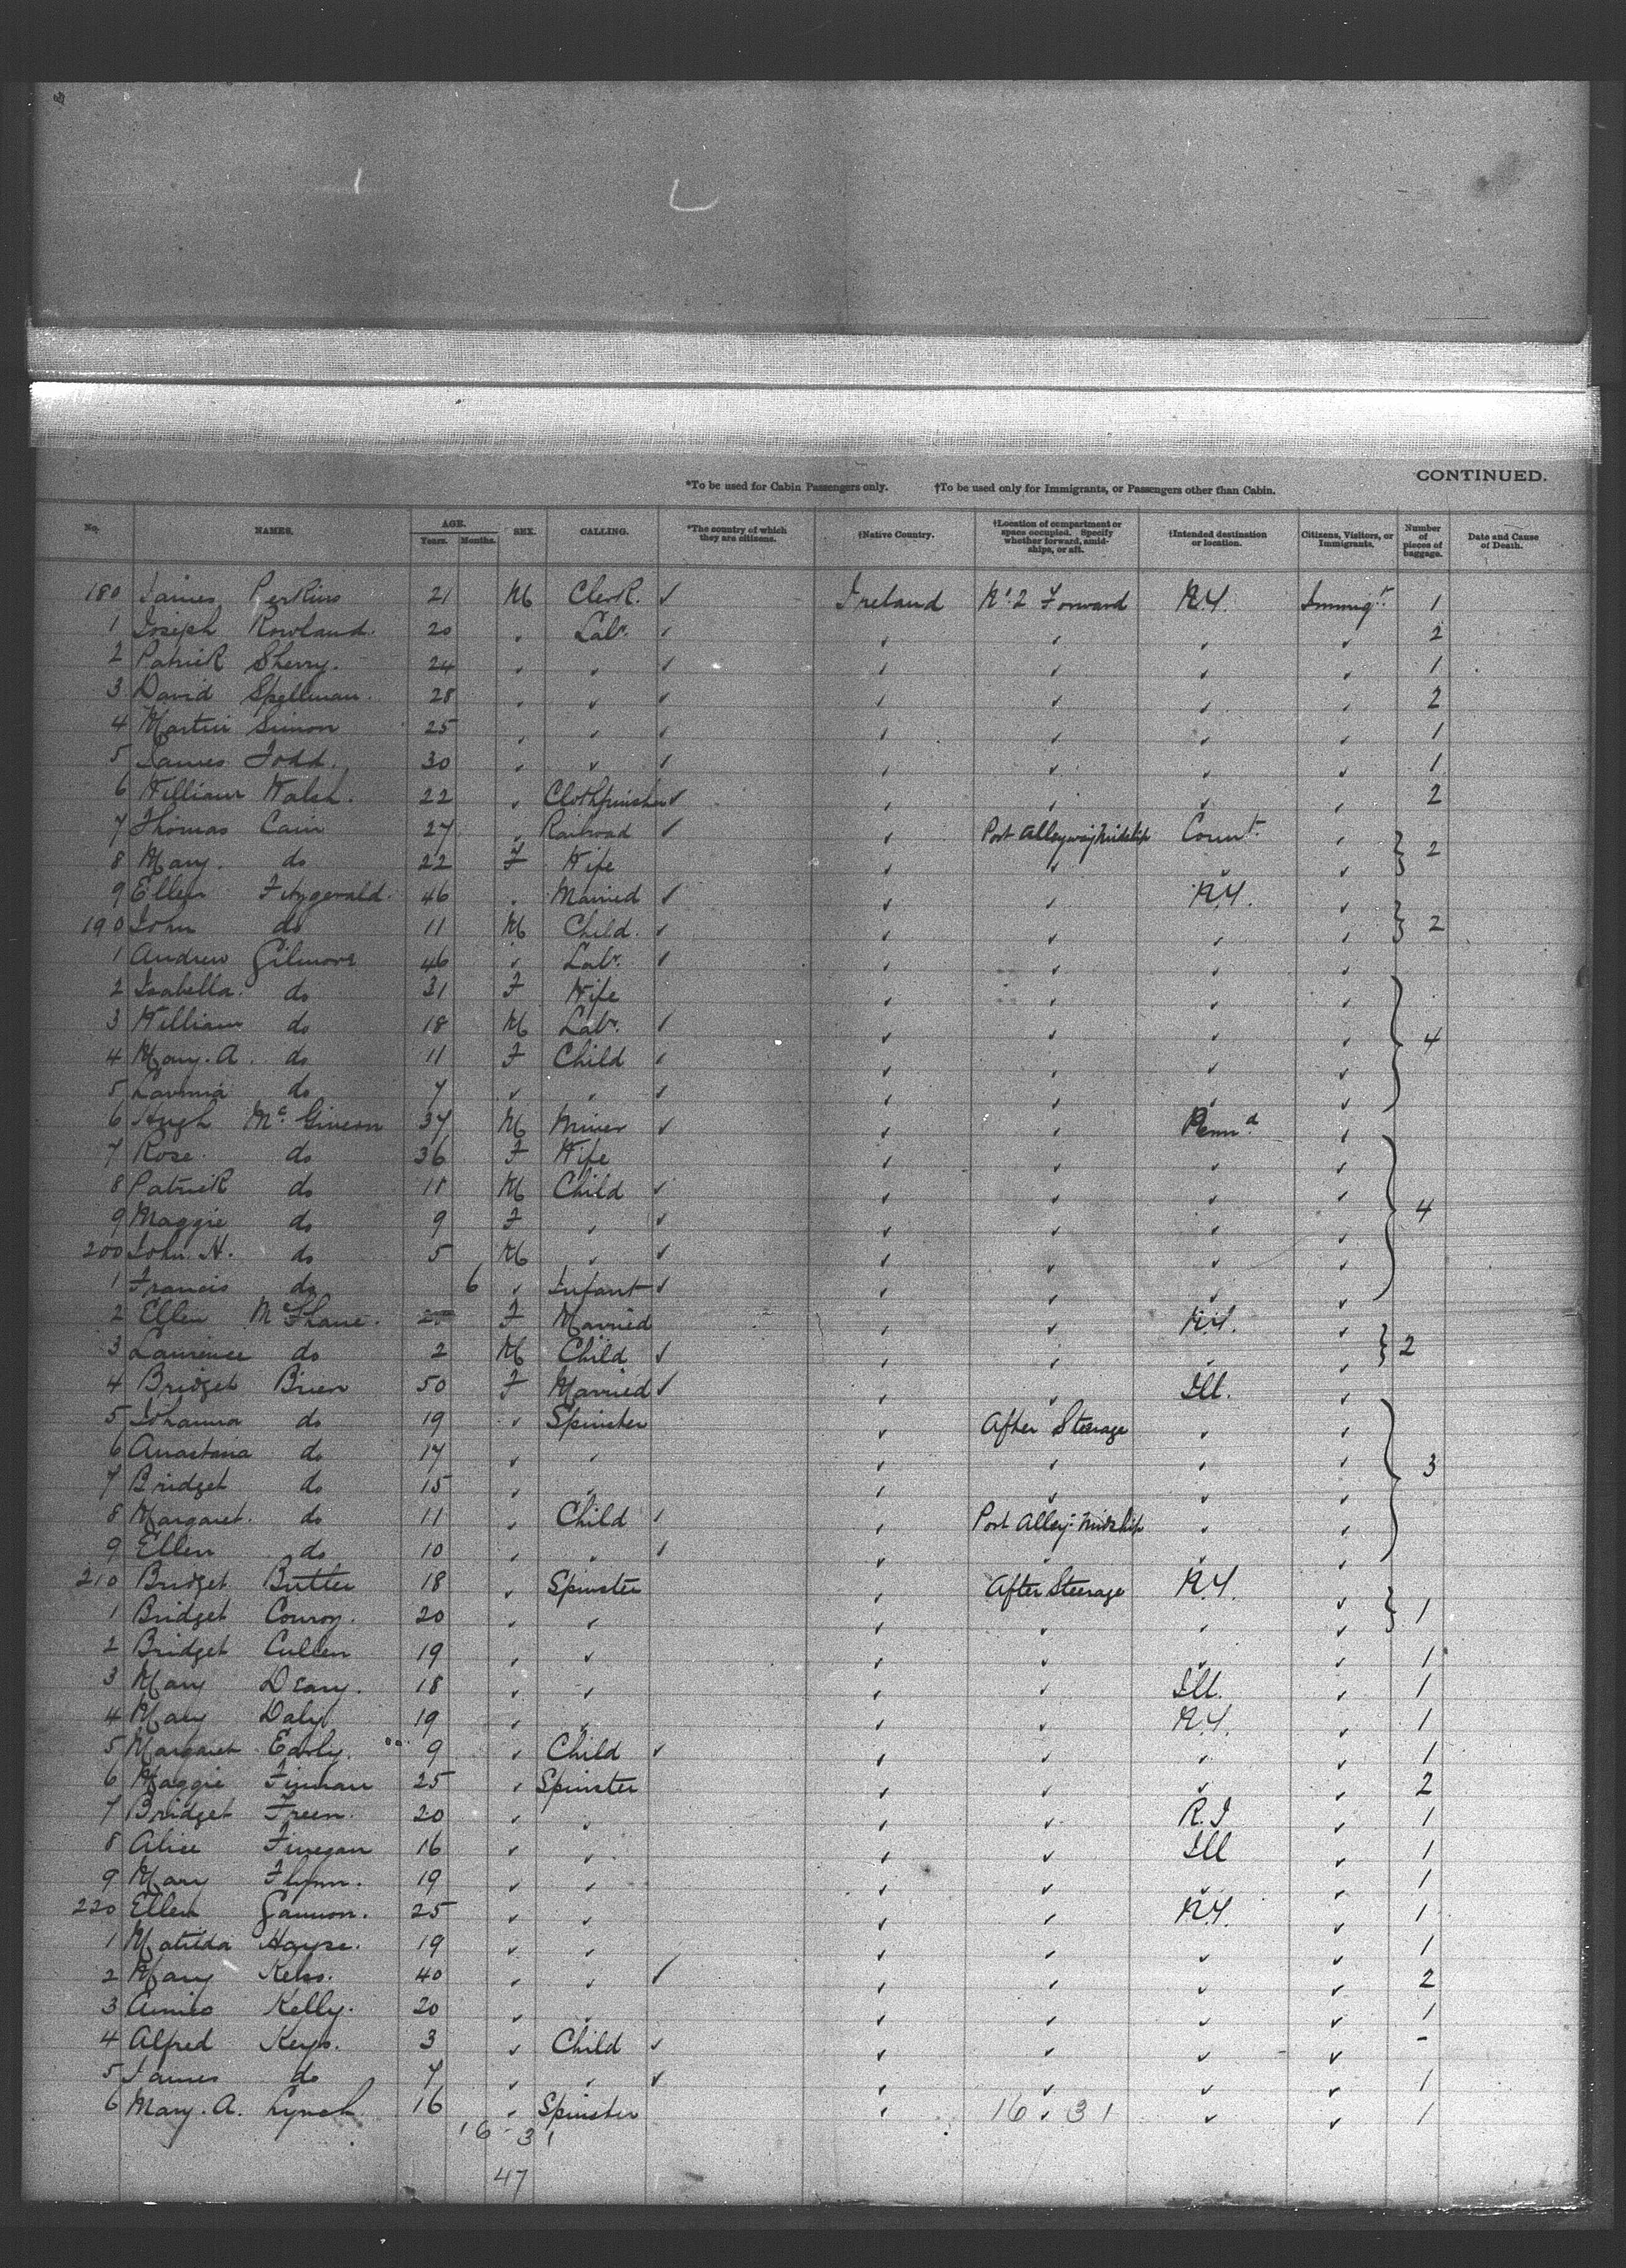 CONTINUED.
*To be used for Cabin Passengers only. †To be used only for Immigrants, or Passengers other than Cabin.
No. NAMES. AGE. Years. Months. SEX. CALLING. *The country of which they are citizens. †Native Country. †Location of compartment or space occupied. Specify whether forward, amidships, or aft. †Intended destination or location. Citizens, Visitors, or Immigrants. Number of pieces of baggage. Date and Cause of Death.
180 James Perkins 21 M Clerk. ✓ Ireland No. 2 Forward N.Y. Immigt. 1
1 Joseph Rowland. 20 " Labr. ✓ " " " " 2
2 Patrick Sherry. 24 " " ✓ " " " " 1
3 David Spellman. 28 " " ✓ " " " " 2
4 Martin Simon 25 " " ✓ " " " " 1
5 James Todd. 30 " " ✓ " " " " 1
6 William Walsh. 22 " Clothfinisher ✓ " " " " 2
7 Thomas Cain 27 " Railroad ✓ " Port Alleyway Midship Connt. " } 2
8 Mary. do 22 F Wife " " " "
9 Ellen Fitzgerald. 46 " Married ✓ " " N.Y. " } 2
190 John do 11 M Child. ✓ " " " "
1 Andrew Gilmore 46 " Labr. ✓ " " " "
2 Isabella. do 31 F Wife " " " " } 4
3 William do 18 M Labr. ✓ " " " "
4 Mary. A. do 11 F Child ✓ " " " "
5 Lavinia do 7 " " ✓ " " " "
6 Hugh McGiveon 37 M Miner ✓ " " Penna. "
7 Rose. do 36 F Wife " " " " } 4
8 Patrick do 11 M Child ✓ " " " "
9 Maggie do 9 F " ✓ " " " "
200 John H. do 5 M " ✓ " " " "
1 Francis do 6 " Infant ✓ " " " "
2 Ellen McShane. F Married " " N.Y. " } 2
3 Laurence do 2 M Child ✓ " " " "
4 Bridget Brien 50 F Married ✓ " " Ill. "
5 Johanna do 19 " Spinster " After Steerage " " } 3
6 Anastasia do 17 " " " " " "
7 Bridget do 15 " " " " " "
8 Margaret. do 11 " Child ✓ " Port Alley: Midship " "
9 Ellen do 10 " " ✓ " " " "
210 Bridget Butler 18 " Spinster " After Steerage N.Y. " } 1
1 Bridget Conroy. 20 " " " " " "
2 Bridget Cullen 19 " " " " " " 1
3 Mary Deary. 18 " " " " Ill. " 1
4 Mary Daly 19 " " " " N.Y. " 1
5 Margaret Early. 9 " Child ✓ " " " " 1
6 Maggie Finnan 25 " Spinster " " " " 2
7 Bridget Freen. 20 " " " " R.I " 1
8 Alice Finegan 16 " " " " Ill " 1
9 Mary Flynn. 19 " " " " " " 1
220 Ellen Gannon. 25 " " " " N.Y. " 1
1 Matilda Hayse. 19 " " " " " " 1
2 Mary Kelso. 40 " " ✓ " " " " 2
3 Annie Kelly. 20 " " " " " " 1
4 Alfred Keys. 3 " Child ✓ " " " " -
5 James do 7 " " ✓ " " " " 1
6 Mary. A. Lynch 16 " Spinster " 16 " 31 " " 1
16 - 31
47